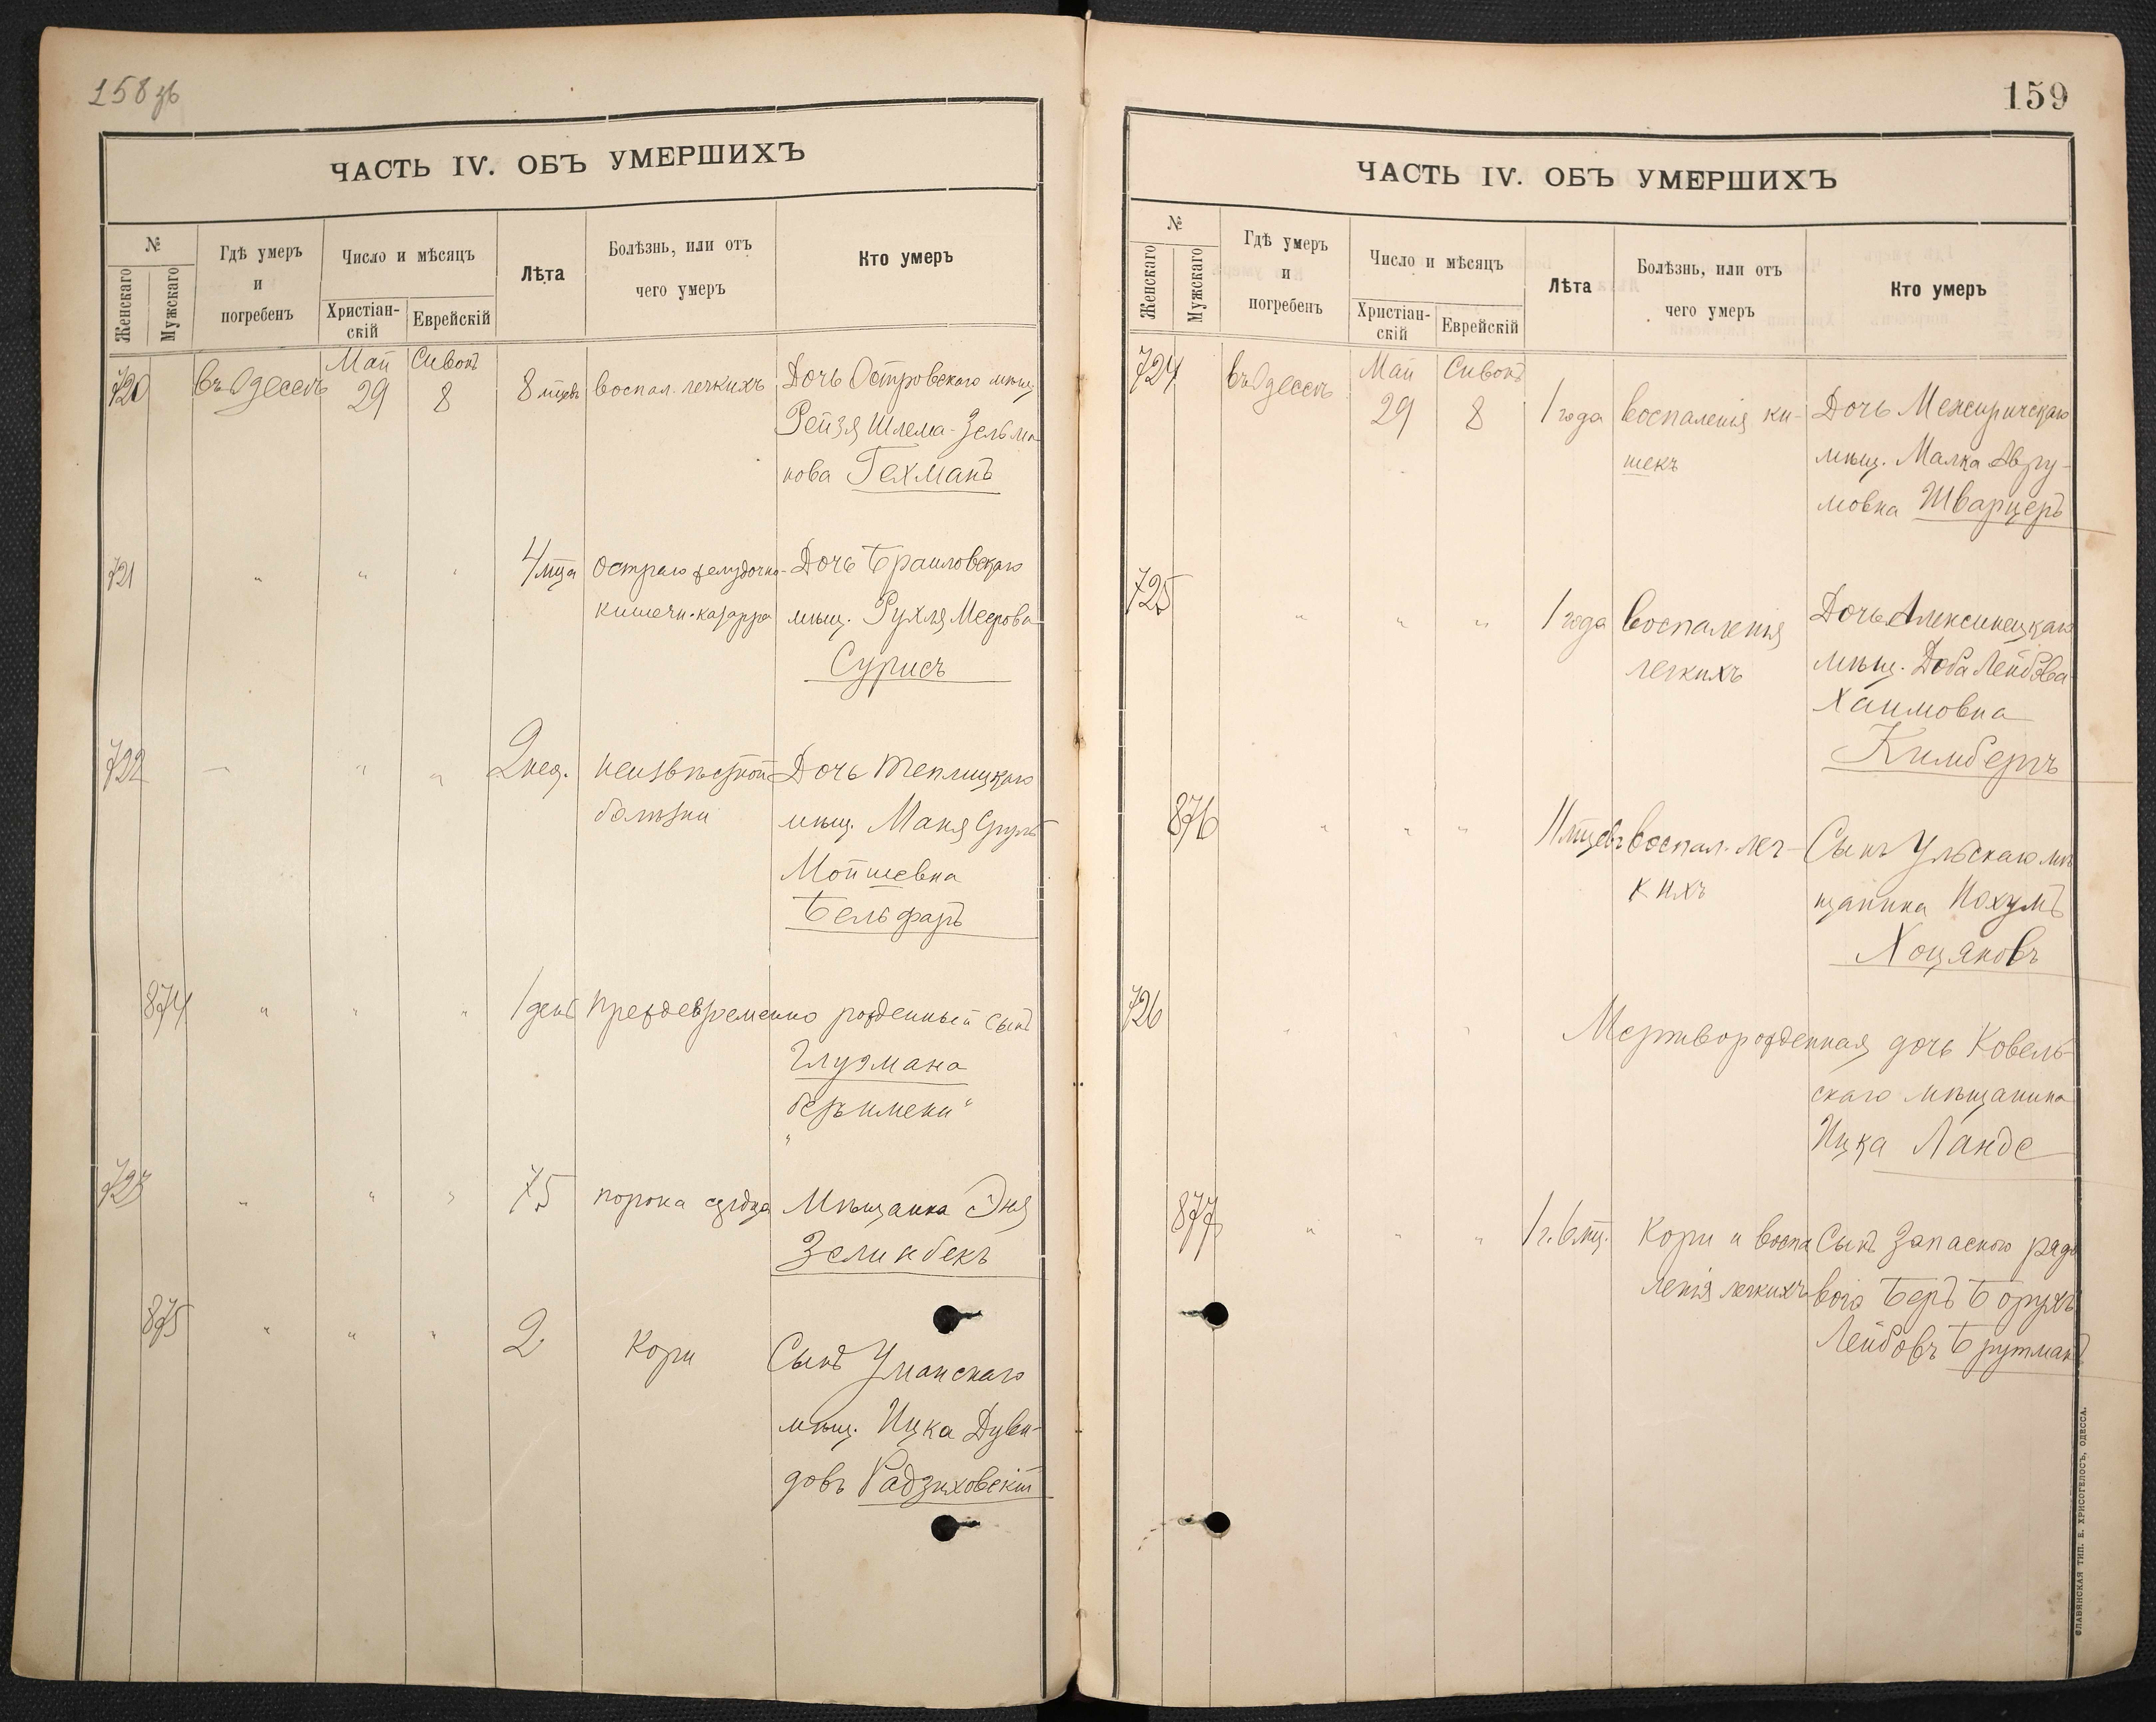 158 зв
ЧАСТЬ IV. ОБЪ УМЕРШИХЪ
№
Женскаго
Мужскаго
Гдѣ умеръ
и
погребенъ
Число и мѣсяцъ
Христіан-
скій
Еврейскій
Лѣта
Болѣзнь, или отъ
чего умеръ
Кто умеръ
720 въ Одессѣ Май 29 Сивонъ 8 8 мцевъ воспал. легкихъ Дочь Островскаго мѣщ.
Рейзя Шлема-Зельма
нова Гехманъ
721 " " " 4 мца остраго желудочно- Дочь Браиловскаго
кишечн. катарра мѣщ. Рухля Меерова
Сурисъ
722 — " " 2 нед. неизвѣстной Дочь Теплицкаго
болѣзни мѣщ. Маня Сруль
Мойшевна
Бельфаръ
874 " " " 1 день преждевременно рожденный сынъ
Глузмана
безъ имени"
"
723 " " " 75 порока сердца Мѣщанка Эня
Зелинбекъ
875 " " " 2 Кори Сынъ Уманскаго
мѣщ. Ицка Дуви-
довъ Радзиховскій
159
ЧАСТЬ IV. ОБЪ УМЕРШИХЪ
№
Женскаго
Мужскаго
Гдѣ умеръ
и
погребенъ
Число и мѣсяцъ
Христіан-
скій
Еврейскій
Лѣта
Болѣзнь, или отъ
чего умеръ
Кто умеръ
724 въ Одессѣ Май 29 Сивонъ 8 1 года воспаленія ки- Дочь Межиричскаго
шекъ мѣщ. Малка Авру-
мовна Шварцеръ
725 " " " 1 года воспаленія Дочь Алексинецкаго
легкихъ мѣщ. Доба Лейбова
Хаимовна
Кимберъ
876 " " " 11 мцевъ воспал. лег- Сынъ Ульскаго мѣ
кихъ щанина Нохумъ
Хоцяновъ
726 " " " Мертворожденная дочь Ковель-
скаго мѣщанина
Ицка Ланде
877 " " " 1 г. 6 мц. Кори и воспа Сынъ Запасного рядо
ленія легкихъ вого Беръ Борухъ
Лейбовъ Брутманъ
СЛАВЯНСКАЯ ТИП. Е. ХРИСОГЕЛОСЪ, ОДЕССА.